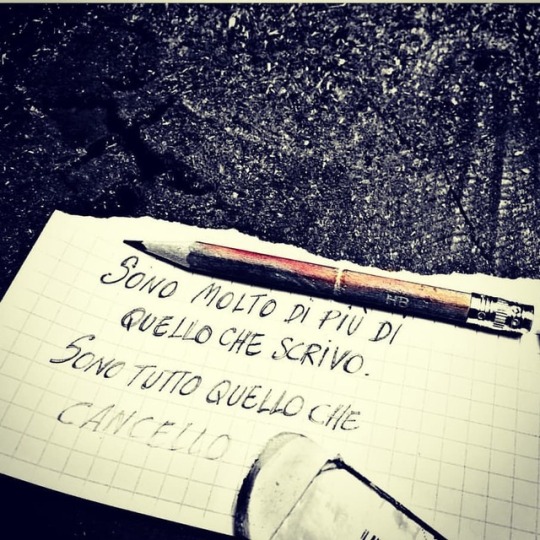 HB
SONO MOLTO DI PIÙ DI
QUELLO CHE SCRIVO.
SONO TUTTO QUELLO CHE
CANCELLO